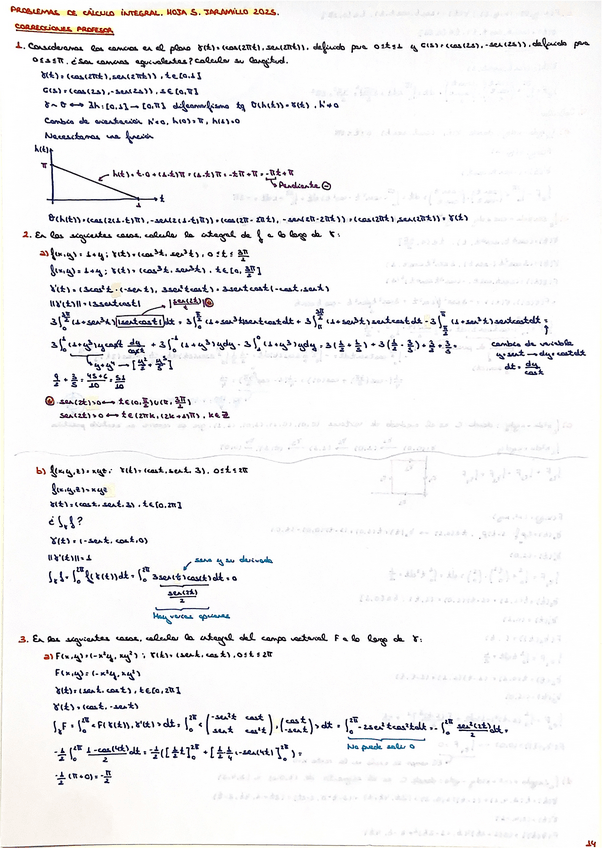 PROBLEMAS DE CÁLCULO INTEGRAL. HOJA 5. JARAMILLO 2025.
CORRECCIONES PROFESOR
1. Consideramos las curvas en el plano γ(t)=(cos(2πt), sen(2πt)), definida para 0≤t≤1 y σ(s)=(cos(2s), -sen(2s)), definida para
0≤s≤π. ¿Son curvas equivalentes? Calcula su longitud.
γ(t)=(cos(2πt), sen(2πt)), t∈[0,1]
σ(s)=(cos(2s), -sen(2s)), s∈[0,π]
γ∼σ ⟷ ∃h:[0,1]→[0,π] difeomorfismo tq σ(h(t))=γ(t), h'≠0
Cambio de orientación h'<0, h(0)=π, h(1)=0
Necesitamos una función
h(t)
π
h(t)=t·0+(1-t)π=(1-t)π=-tπ+π=-πt+π
Pendiente ⊖
t
1
σ(h(t))=(cos(2(1-t)π), -sen(2(1-t)π))=(cos(2π-2πt), -sen(2π-2πt))=(cos(2πt), sen(2πt))=γ(t)
2. En los siguientes casos, calcula la integral de f a lo largo de γ:
a) f(x,y)=1+y; γ(t)=(cos³t, sen³t), 0≤t≤3π/2
f(x,y)=1+y; γ(t)=(cos³t, sen³t), t∈[0,3π/2]
γ'(t)=(3cos²t·(-sent), 3sen²tcost)=3sentcost(-cost, sent)
||γ'(t)||=|3sentcost|
|sen(2t)/2|
3∫₀^{3π/2}(1+sen³t)|sentcost|dt=3∫₀^{π/2}(1+sen³t)sentcostdt+3∫_π^{3π/2}(1+sen³t)sentcostdt-3∫_{π/2}^π(1+sen³t)sentcostdt=
3∫₀¹(1+y³)ycost dy/cost+3∫₀^{-1}(1+y³)ydy-3∫₁⁰(1+y³)ydy=3(1/2+1/5)+3(1/2-1/5)+3/2+3/5=
cambio de variable
y=sent→dy=costdt
dt=dy/cost
y+y⁴→[y²/2+y⁵/5]
9/2+3/5=(45+6)/10=51/10
sen(2t)>0⟷t∈(0,π/2)∪(π,3π/2)
sen(2t)>0⟷t∈(2πk,(2k+1)π), k∈ℤ
b) f(x,y,z)=xyz; γ(t)=(cost, sent, 3), 0≤t≤2π
f(x,y,z)=xyz
γ(t)=(cost, sent, 3), t∈[0,2π]
¿∫_γ f?
γ'(t)=(-sent, cost, 0)
||γ'(t)||=1
seno y su derivada
∫_γ f=∫₀^{2π}f(γ(t))dt=∫₀^{2π}3sen(t)cos(t)dt=0
sen(2t)/2
Hay varias opciones
3. En los siguientes casos, calcula la integral del campo vectorial F a lo largo de γ:
a) F(x,y)=(-x²y, xy²); γ(t)=(sent, cost), 0≤t≤2π
F(x,y)=(-x²y, xy²)
γ(t)=(sent, cost), t∈[0,2π]
γ'(t)=(cost, -sent)
∫_γ F=∫₀^{2π}<F(γ(t)),γ'(t)>dt=∫₀^{2π}<(-sen²t cost, sent cos²t),(cost, -sent)>dt=∫₀^{2π}-2sen²tcos²tdt=-∫₀^{2π}sen²(2t)/2 dt=
No puede salir 0
-1/2∫₀^{2π}(1-cos(4t))/2 dt=-1/2([1/2 t]₀^{2π}+[1/2·1/4·(-sen(4t))]₀^{2π})=
-1/2(π+0)=-π/2
14